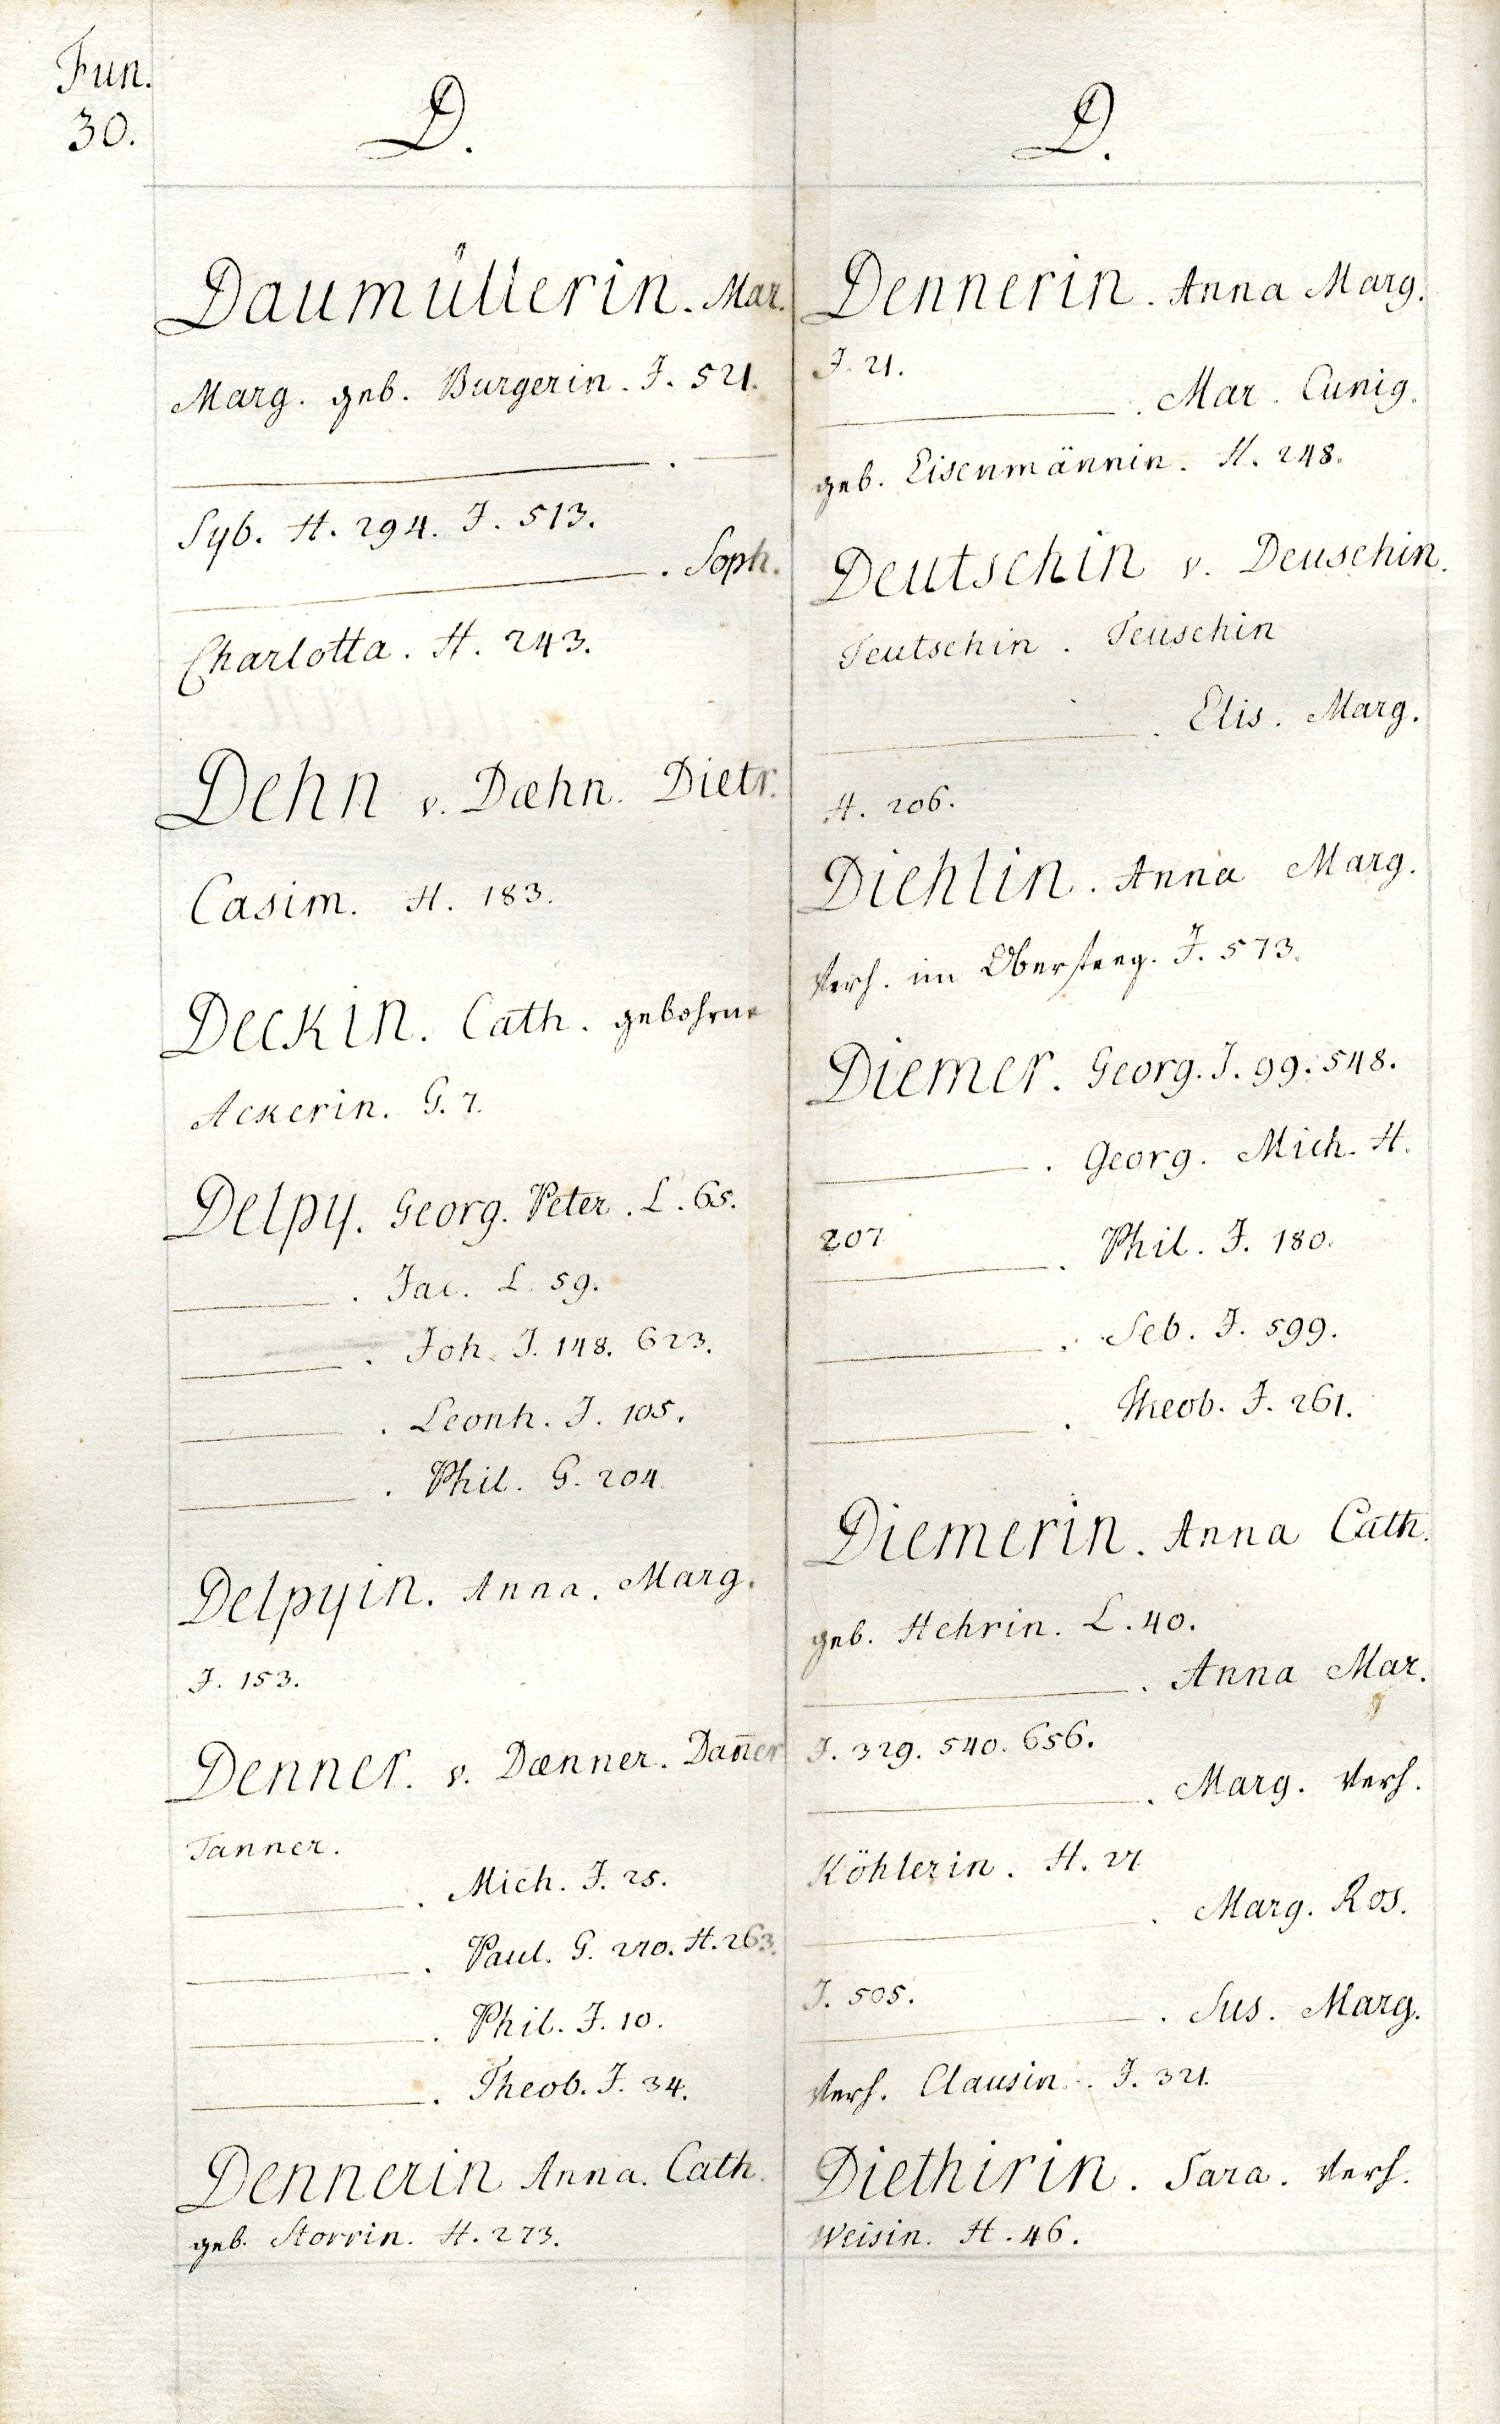 Fun.
30.
D.
Daumüllerin. Mar.
Marg. geb. Burgerin. J. 521.
———. —
Syb. H. 294. J. 513.
———. Soph.
Charlotta. H. 243.
Dehn v. Dæhn. Dietr.
Casim. H. 183.
Deckin. Cath. gebohrne
Ackerin. G. 7.
Delpy. Georg. Peter. L. 65.
———. Jac. L. 59.
———. Joh. J. 148. 623.
———. Leonh. J. 105.
———. Phil. G. 204.
Delpyin. Anna. Marg.
J. 153.
Denner. v. Dænner. Dan̄er
Tanner.
———. Mich. J. 25.
———. Paul. G. 270. H. 263.
———. Phil. J. 10.
———. Theob. J. 34.
Dennerin Anna. Cath.
geb. Storrin. H. 273.
D.
Dennerin. Anna Marg.
J. 21.
———. Mar. Cunig.
geb. Eisenmännin. H. 248.
Deutschin v. Deuschin.
Teutschin. Teuschin
———. Elis. Marg.
H. 206.
Diehlin. Anna Marg.
Verh. im Obersteeg. J. 573.
Diemer. Georg. J. 99. 548.
———. Georg. Mich. H.
207
———. Phil. J. 180.
———. Seb. J. 599.
———. Theob. J. 261.
Diemerin. Anna Cath.
geb. Hehrin. L. 40.
———. Anna Mar.
J. 329. 540. 656.
———. Marg. Verh.
Köhlerin. H. 27
———. Marg. Ros.
J. 505.
———. Sus. Marg.
Verh. Clausin. J. 321.
Diethirin. Sara. Verh.
Weisin. H. 46.